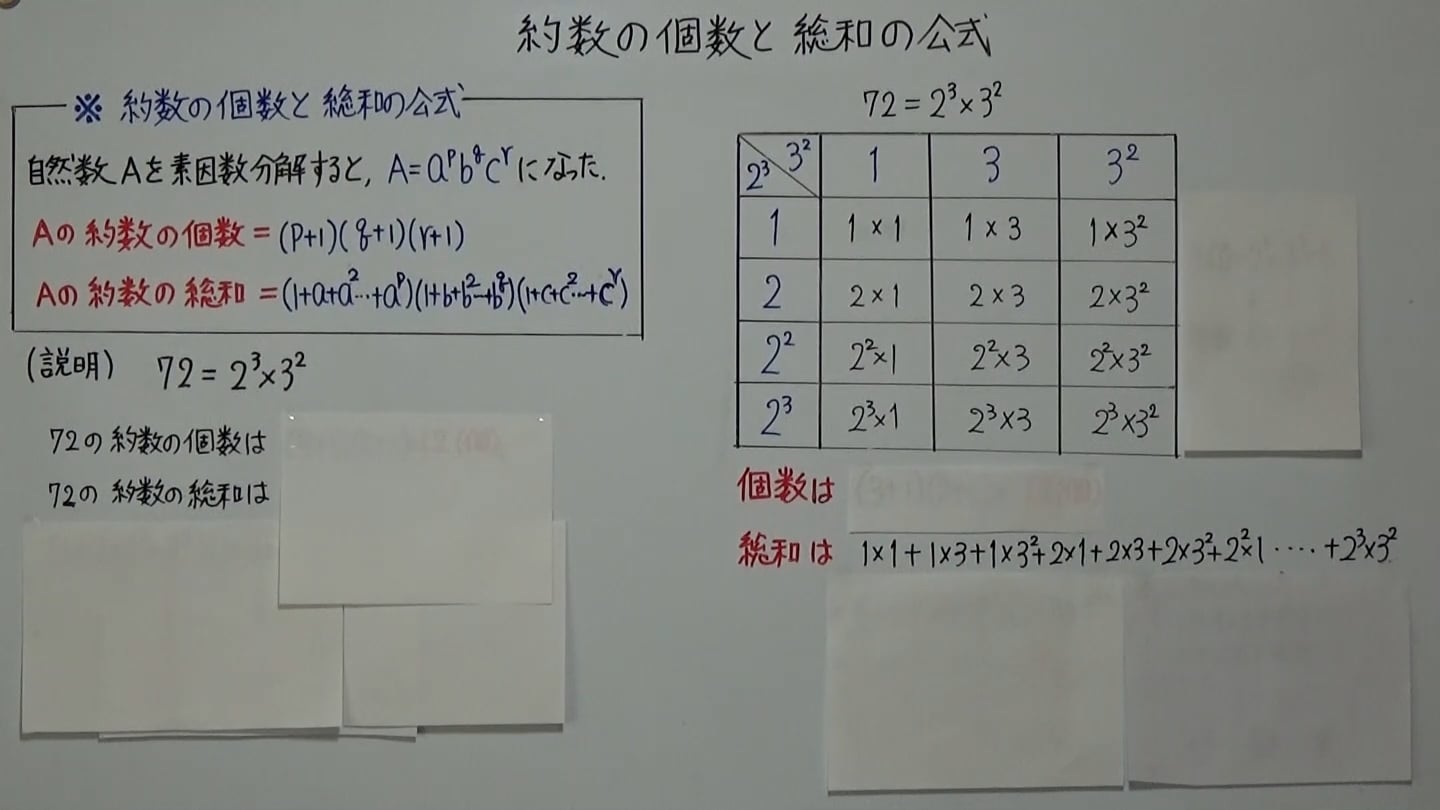 約数の個数と総和の公式
※ 約数の個数と総和の公式
自然数Aを素因数分解すると, A=aᵖb^qcʳになった.
Aの約数の個数=(p+1)(q+1)(r+1)
Aの約数の総和=(1+a+a²…+aᵖ)(1+b+b²…+b^q)(1+c+c²…+cʳ)
(説明) 72=2³×3²
72の約数の個数は
72の約数の総和は
72=2³×3²
2³ 3² 1 3 3²
1 1×1 1×3 1×3²
2 2×1 2×3 2×3²
2² 2²×1 2²×3 2²×3²
2³ 2³×1 2³×3 2³×3²
個数は
総和は 1×1+1×3+1×3²+2×1+2×3+2×3²+2²×1‥‥+2³×3²